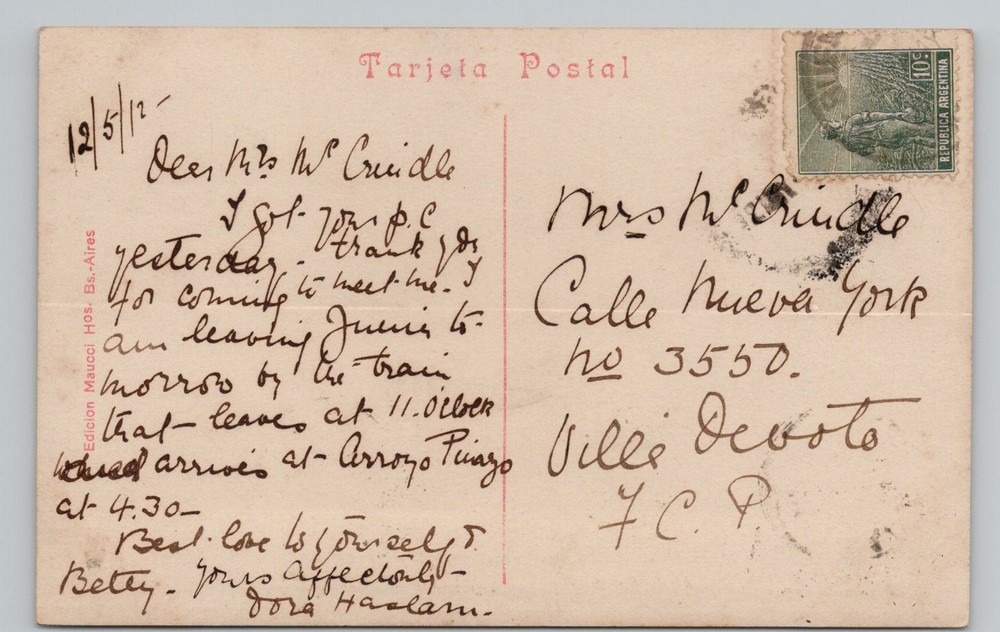 Tarjeta Postal
10c
REPUBLICA ARGENTINA
12/5/12
Dear Mrs McCrindle
I got your p.c
yesterday. thank you
for coming to meet me. I
am leaving Junin to-
morrow by the train
that leaves at 11. O'Clock
and arrives at Arroyo Pinazo
at 4.30
Best love to yourself &
Betty. Yours affectionately
Dora Haslam.
Edicion Maucci Hos. Bs.-Aires
Mrs McCrindle
Calle Nueva York
No 3550.
Villa Devoto
F C. P.